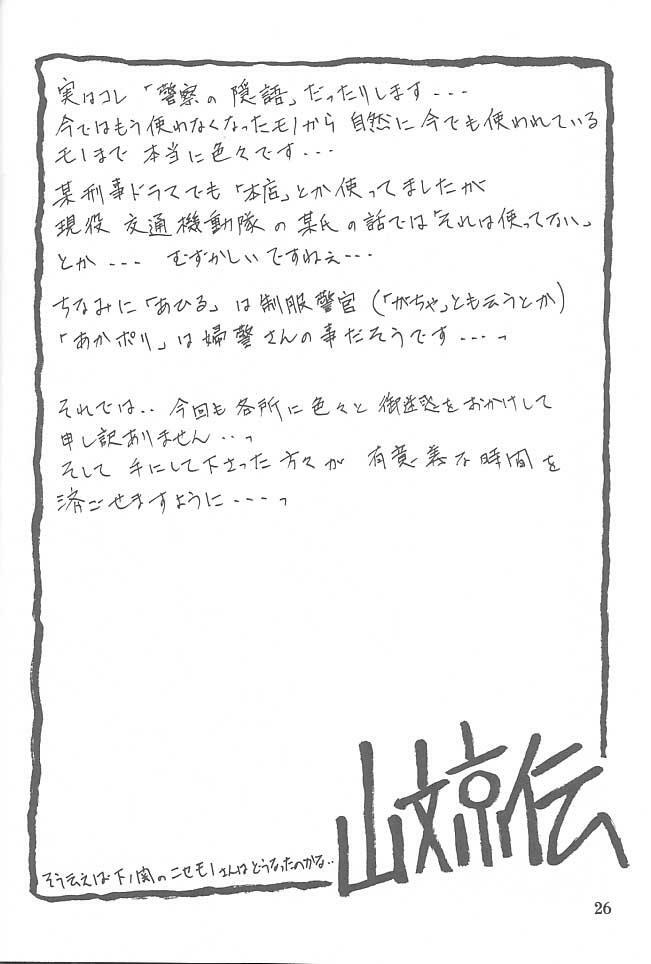 実はコレ「警察の隠語」だったりします---
今ではもう使われなくなったモノから 自然に今でも使われている
モノまで 本当に色々です---
某刑事ドラマでも「本店」とか使ってましたが
現役 交通機動隊の某氏の話では「それは使ってない」
とか--- むずかしいですねぇ---
ちなみに「あひる」は制服警官(「がちゃ」とも云うとか)
「あかポリ」は婦警さんの事だそうです---っ
それでは.. 今回も各所に色々と御迷惑をおかけして
申し訳ありません...っ
そして 手にして下さった方々が 有意義な時間を
済ごせますように---っ
山文京伝
そう云えば下ノ関のニセモノさんはどうなったのかな..
26